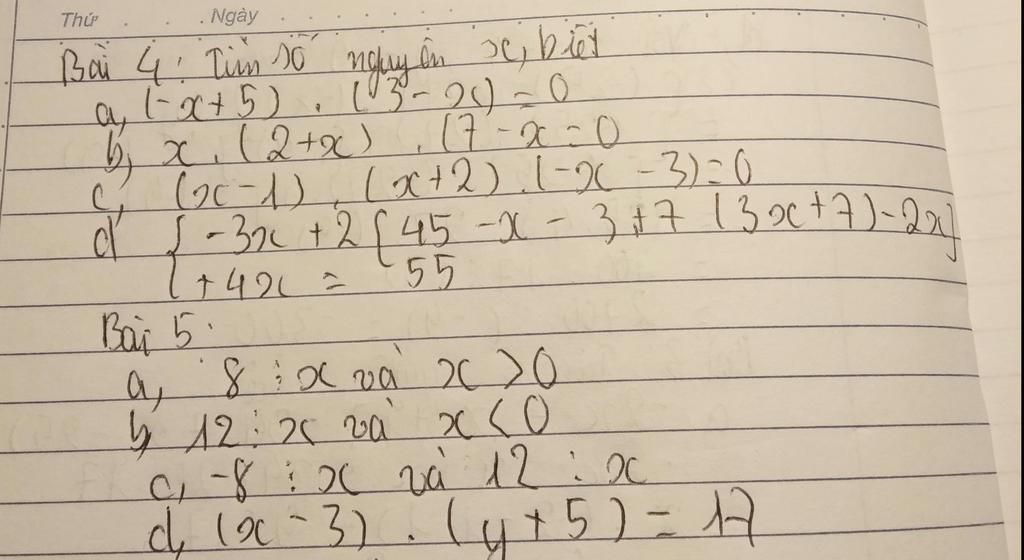 Thứ . . . Ngày . . . . . .
Bài 4: Tìm số nguyên x, biết
a, (-x+5) . (3-x) = 0
b, x . (2+x) . (7-x = 0
c, (x-1) . (x+2) . (-x-3) = 0
d { -3x + 2 { 45 - x - 3 + 7 (3x+7) - 2x]
+ 4x = 55
Bài 5:
a, 8 ⋮ x và x > 0
b, 12 ⋮ x và x < 0
c, -8 ⋮ x và 12 ⋮ x
d, (x-3) . (y+5) = 17